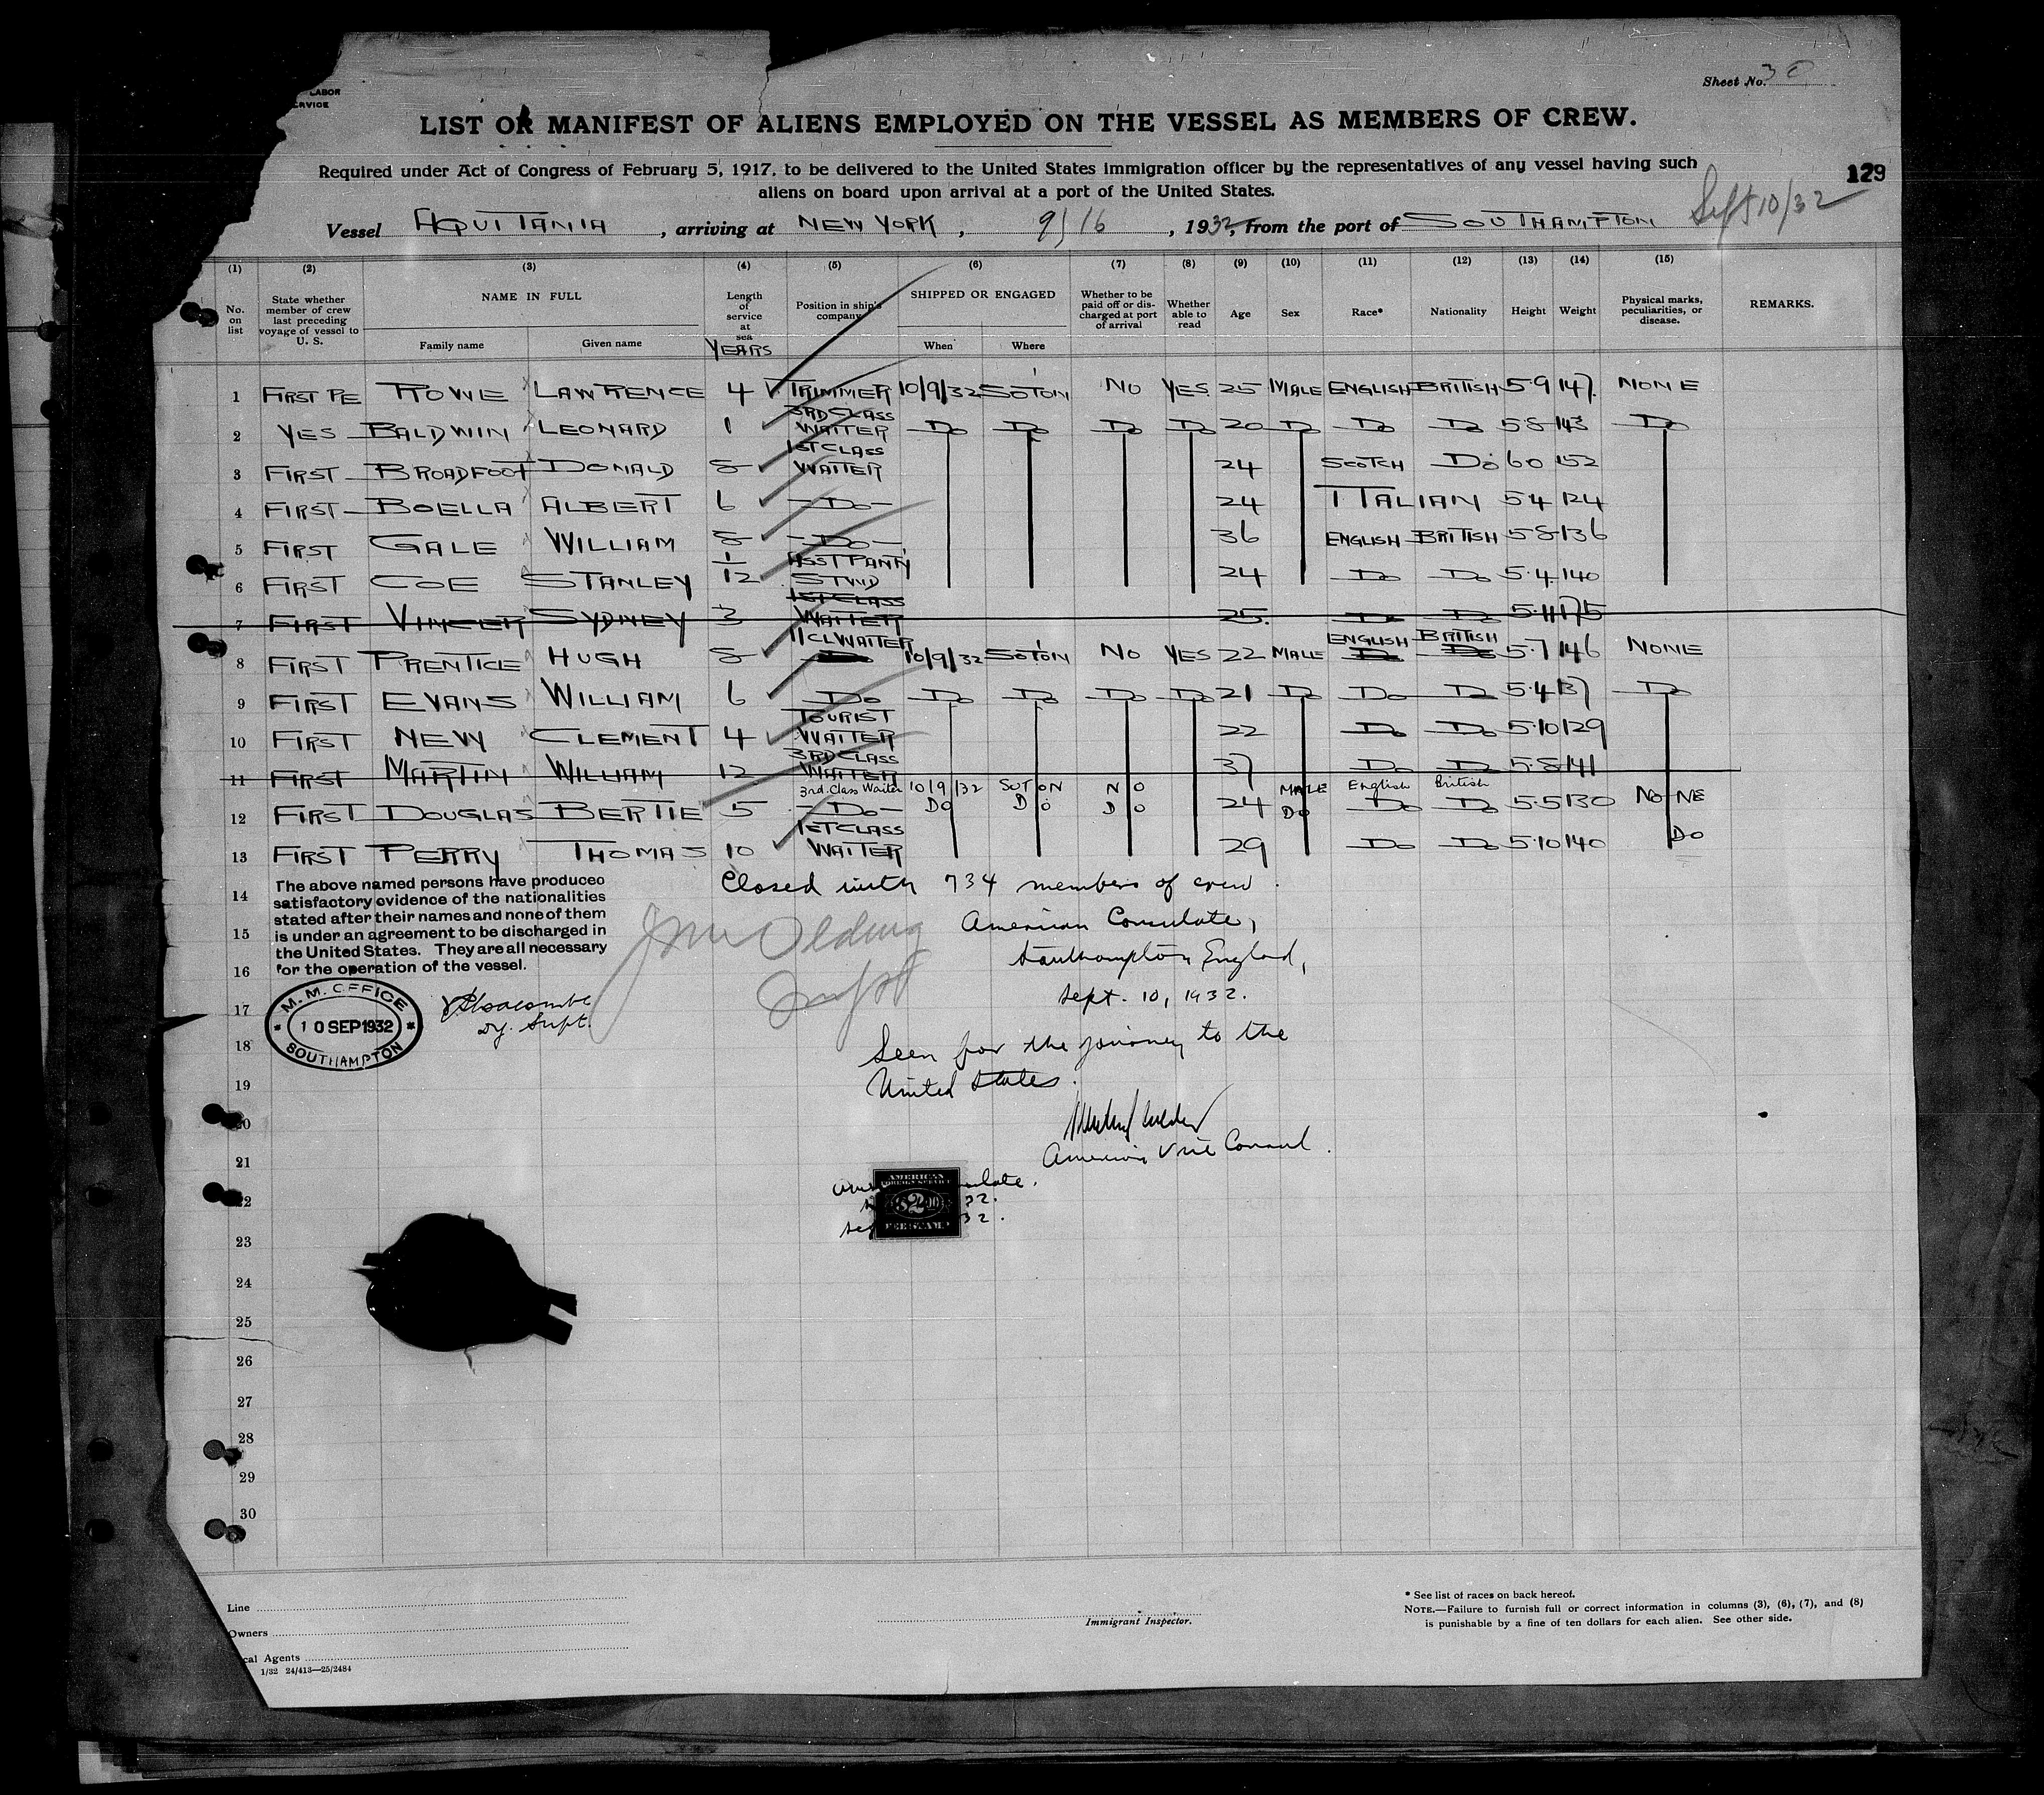 LABOR
Sheet No. 30
LIST OR MANIFEST OF ALIENS EMPLOYED ON THE VESSEL AS MEMBERS OF CREW.
Required under Act of Congress of February 5, 1917, to be delivered to the United States immigration officer by the representatives of any vessel having such
aliens on board upon arrival at a port of the United States.
129
Sept 10/32
Vessel AQUITANIA, arriving at NEW YORK, 9/16, 1932, from the port of SOUTHAMPTON
(1) (2) (3) (4) (5) (6) (7) (8) (9) (10) (11) (12) (13) (14) (15)
No. on list
State whether member of crew last preceding voyage of vessel to U. S.
NAME IN FULL
Family name Given name
Length of service at sea YEARS
Position in ship's company
SHIPPED OR ENGAGED
When Where
Whether to be paid off or discharged at port of arrival
Whether able to read
Age Sex Race* Nationality Height Weight
Physical marks, peculiarities, or disease.
REMARKS.
1 FIRST ROWE LAWRENCE 4 TRIMMER 10/9/32 SOTON NO YES 25 MALE ENGLISH BRITISH 5·9 147 NONE
2 YES BALDWIN LEONARD 1 3RD CLASS WAITER Do Do Do Do 20 Do Do Do 5·8 143 Do
3 FIRST BROADFOOT DONALD 8 1ST CLASS WAITER 24 SCOTCH Do 6·0 152
4 FIRST BOELLA ALBERT 6 -Do- 24 ITALIAN 5·4 124
5 FIRST GALE WILLIAM 8 -Do- 36 ENGLISH BRITISH 5·8 136
6 FIRST COE STANLEY 1/12 ASST PANTY STWD 24 Do Do 5·4 140
7 FIRST VINCER SYDNEY 3 1ST CLASS WAITER 25 Do Do 5·11 175
8 FIRST PRENTICE HUGH 8 11 CL WAITER 10/9/32 SOTON NO YES 22 MALE ENGLISH BRITISH 5·7 146 NONE
9 FIRST EVANS WILLIAM 6 Do Do Do Do Do 21 Do Do Do 5·4 137 Do
10 FIRST NEW CLEMENT 4 TOURIST WAITER 22 Do Do 5·10 129
11 FIRST MARTIN WILLIAM 12 3RD CLASS WAITER 37 Do Do 5·8 141
12 FIRST DOUGLAS BERTIE 5 3rd. Class Waiter -Do- 10/9/32 Do SOTON Do NO Do 24 MALE Do English Do British Do 5·5 130 NONE
13 FIRST PERRY THOMAS 10 1ST CLASS WAITER 29 Do Do 5·10 140 Do
14
15
16
17
18
19
20
21
22
23
24
25
26
27
28
29
30
The above named persons have produced
satisfactory evidence of the nationalities
stated after their names and none of them
is under an agreement to be discharged in
the United States. They are all necessary
for the operation of the vessel.
M. M. OFFICE
10 SEP 1932
SOUTHAMPTON
Dy. Supt.
Closed with 734 members of crew.
American Consulate,
Southampton England,
Sept. 10, 1932.
Seen for the journey to the
United States.
American Vice Consul.
AMERICAN
FOREIGN SERVICE
$2.00
FEE STAMP
Line
Owners
cal Agents
1/32 24/413—25/2484
Immigrant Inspector.
* See list of races on back hereof.
NOTE.—Failure to furnish full or correct information in columns (3), (6), (7), and (8)
is punishable by a fine of ten dollars for each alien. See other side.